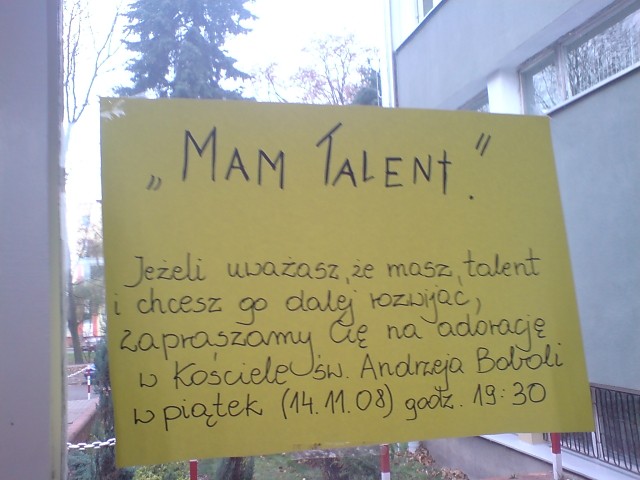 „MAM TALENT."
Jeżeli uważasz, że masz talent
i chcesz go dalej rozwijać,
zapraszamy Cię na adorację
w Kościele św. Andrzeja Boboli
w piątek (14.11.08) godz. 19:30